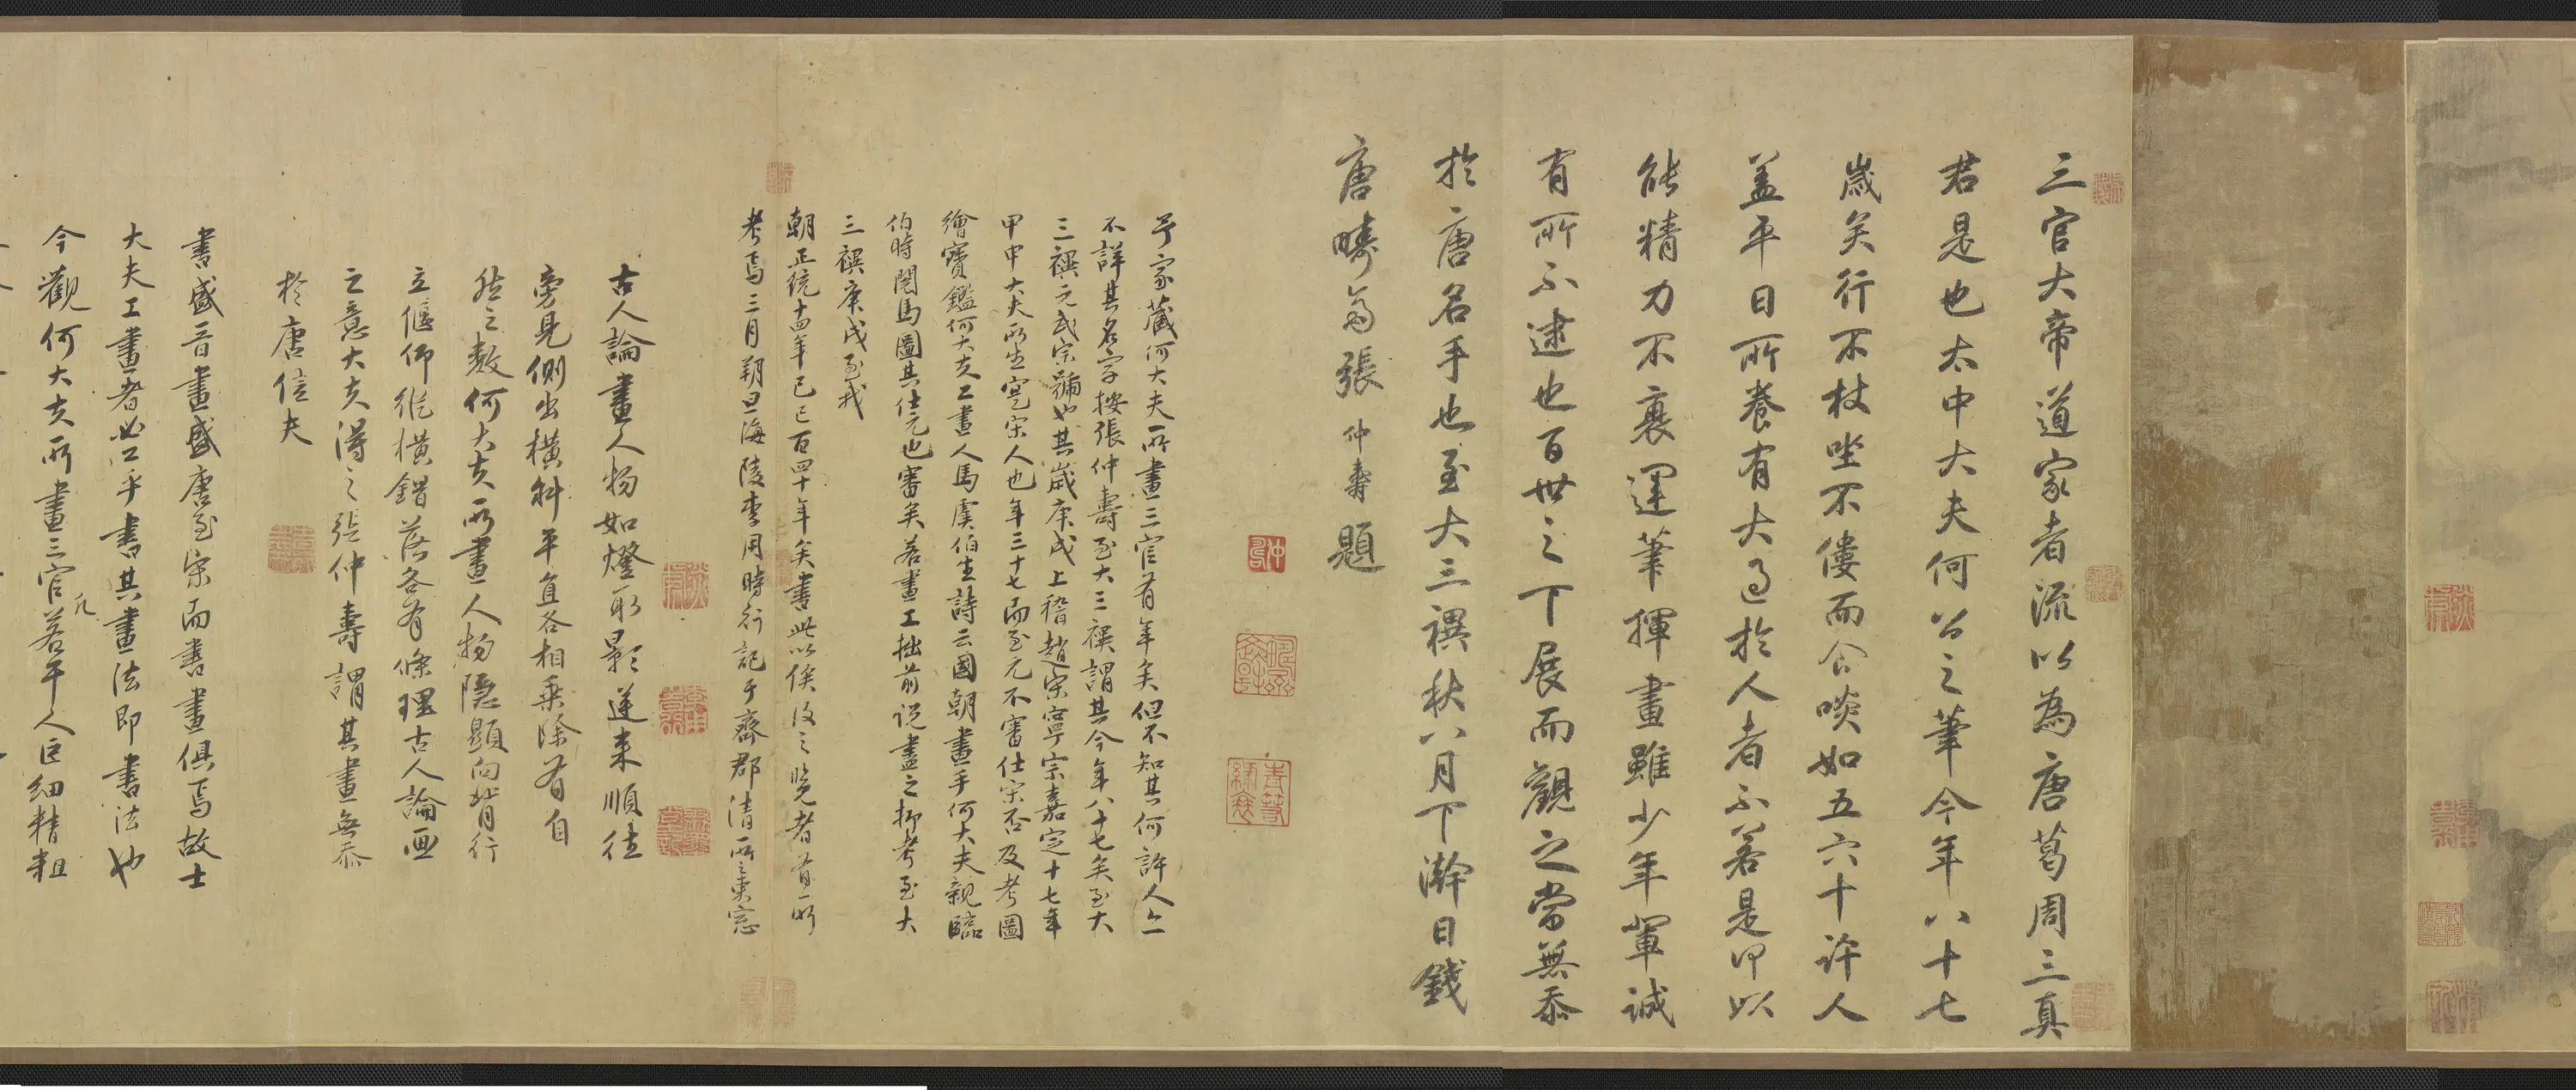 三官大帝道家者流以為唐葛周三真
君是也太中大夫何公之筆今年八十七
歲矣行不杖坐不僂而食啖如五六十許人
盖平日所養有大過於人者不若是何以
能精力不衰運筆揮畫雖少年輩誠
有所不逮也百世之下展而觀之當無忝
於唐名手也至大三禩秋八月下澣日錢
唐疇齋張仲壽題
予家藏何大夫所畫三官有年矣但不知其何許人亦
不詳其名字按張仲壽至大三禩謂其今年八十七矣至大
三禩元武宗號也其歲庚戌上稽趙宋寧宗嘉定十七年
甲申大夫所生寔宋人也年三十七而至元不審仕宋否及考圖
繪寶鑑何大夫工畫人馬虞伯生詩云國朝畫手何大夫親臨
伯時閱馬圖其仕元也審矣若畫工拙前説盡之抑考至大
三禩庚戌至我
朝正統十四年己巳百四十年矣書此以俟後之覽者有所
考焉三月朔旦海陵李用時行記于齋郡清所之東窓
古人論畫人物如燈取影逆來順往
旁見側出橫斜平直各相乗除有自
然之數何大夫所畫人物隐顯向背行
立偃仰縱橫錯落各有條理古人論画
之意大夫得之張仲壽謂其畫無忝
於唐信夫
書盛晋畫盛唐至宋而書畫俱焉故士
大夫工畫者必工乎書其畫法即書法也
今觀何大夫所畫三官凡若干人巨細精粗